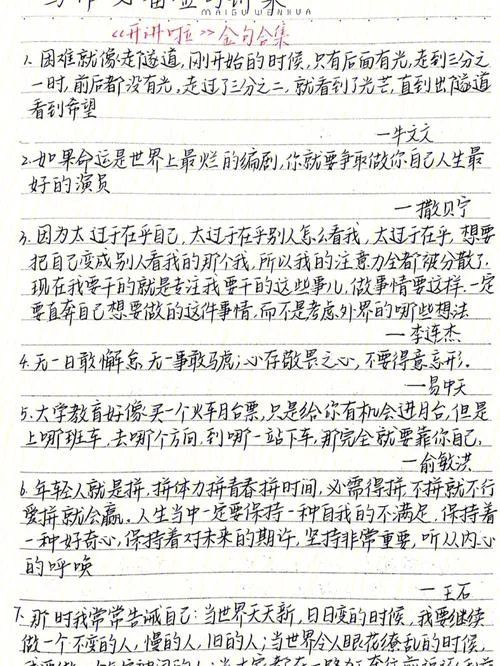 MAIGU WENHUA
《开讲啦》金句合集
1. 困难就像走隧道，刚开始的时候，只有后面有光，走到三分之
一时，前后都没有光，走过了三分之二，就看到了光芒，直到出了隧道
看到希望
—牛文文
2. 如果命运是世界上最烂的编剧，你就要争取做你自己人生最
好的演员
—撒贝宁
3. 因为太过于在乎自己，太过于在乎别人怎么看我，太过于在乎，想要
把自己变成别人看我的那个我，所以我的注意力全都被分散了.
现在我要干的就是专注我要干的这些事儿，做事情要这样，一定
要直奔自己想要做的这件事情，而不是考虑外界的哪些想法
—李连杰
4. 无一日敢懈怠，无一事敢马虎；心存敬畏之心，不要得意忘形.
—易中天
5. 大学教育好像买一个火车月台票，只是给你有机会进月台，但是
上哪班车，去哪个方向，到哪一站下车，那完全就要靠你自己.
—俞敏洪
6. 年轻人就是拼，拼体力拼青春拼时间，必需得拼，不拼就不行
爱拼就会赢。人生当中一定要保持一种自我的不满足，保持着
一种好奇心，保持着对未来的期许，坚持非常重要，听从内心
的呼唤
—王石
7. 那时我常常告诫自己：当世界天天新，日日变的时候，我要继续
做一个不变的人，慢的人，旧的人；当世界令人眼花缭乱的时候，